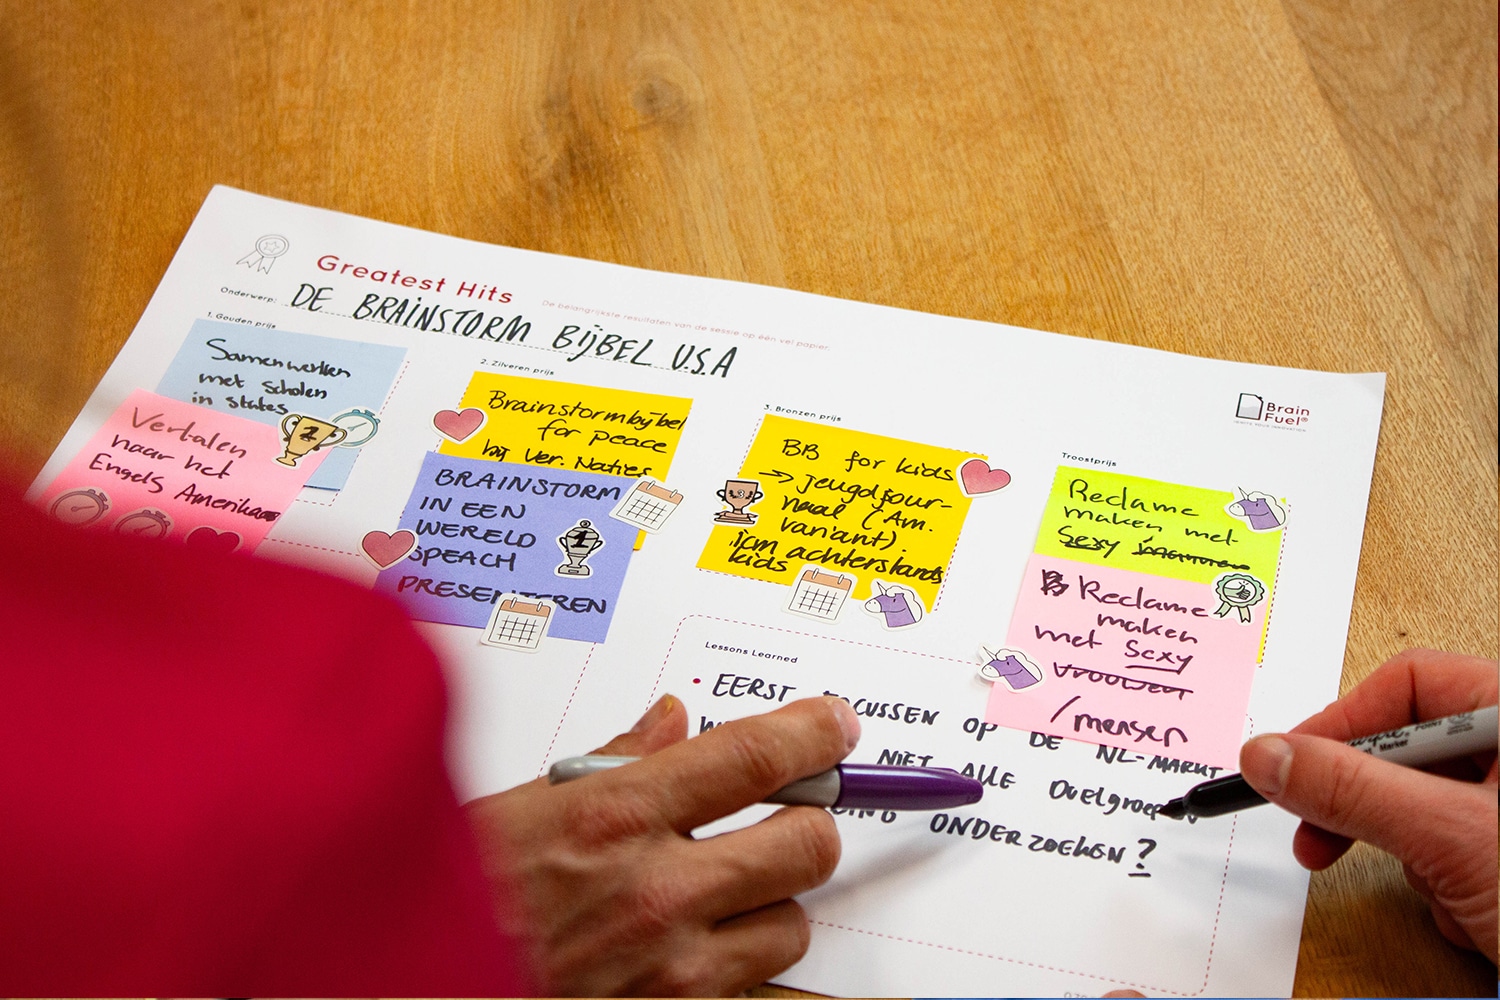 Greatest Hits
De belangrijkste resultaten van de sessie op één vel papier.
Onderwerp: DE BRAINSTORM BIJBEL U.S.A
1. Gouden prijs
Samenwerken
met scholen
in states
1
Vertalen
naar het
Engels Amerikaa
2. Zilveren prijs
Brainstormbijbel
for peace
bij Ver. Naties
BRAINSTORM
IN EEN
WERELD
SPEACH
PRESENTEREN
1
3. Bronzen prijs
BB for kids
→ jeugdjour-
naal (Am.
variant).
icm achterstands
kids
3
Brain
Fuel®
Troostprijs
Reclame
maken met
Sexy
Reclame
maken
met Sexy
vrouwen
/mensen
Lessons Learned
• EERST FOCUSSEN OP DE NL-MARKT
NIET ALLE Doelgroepen
ONDERZOEKEN?
Marker